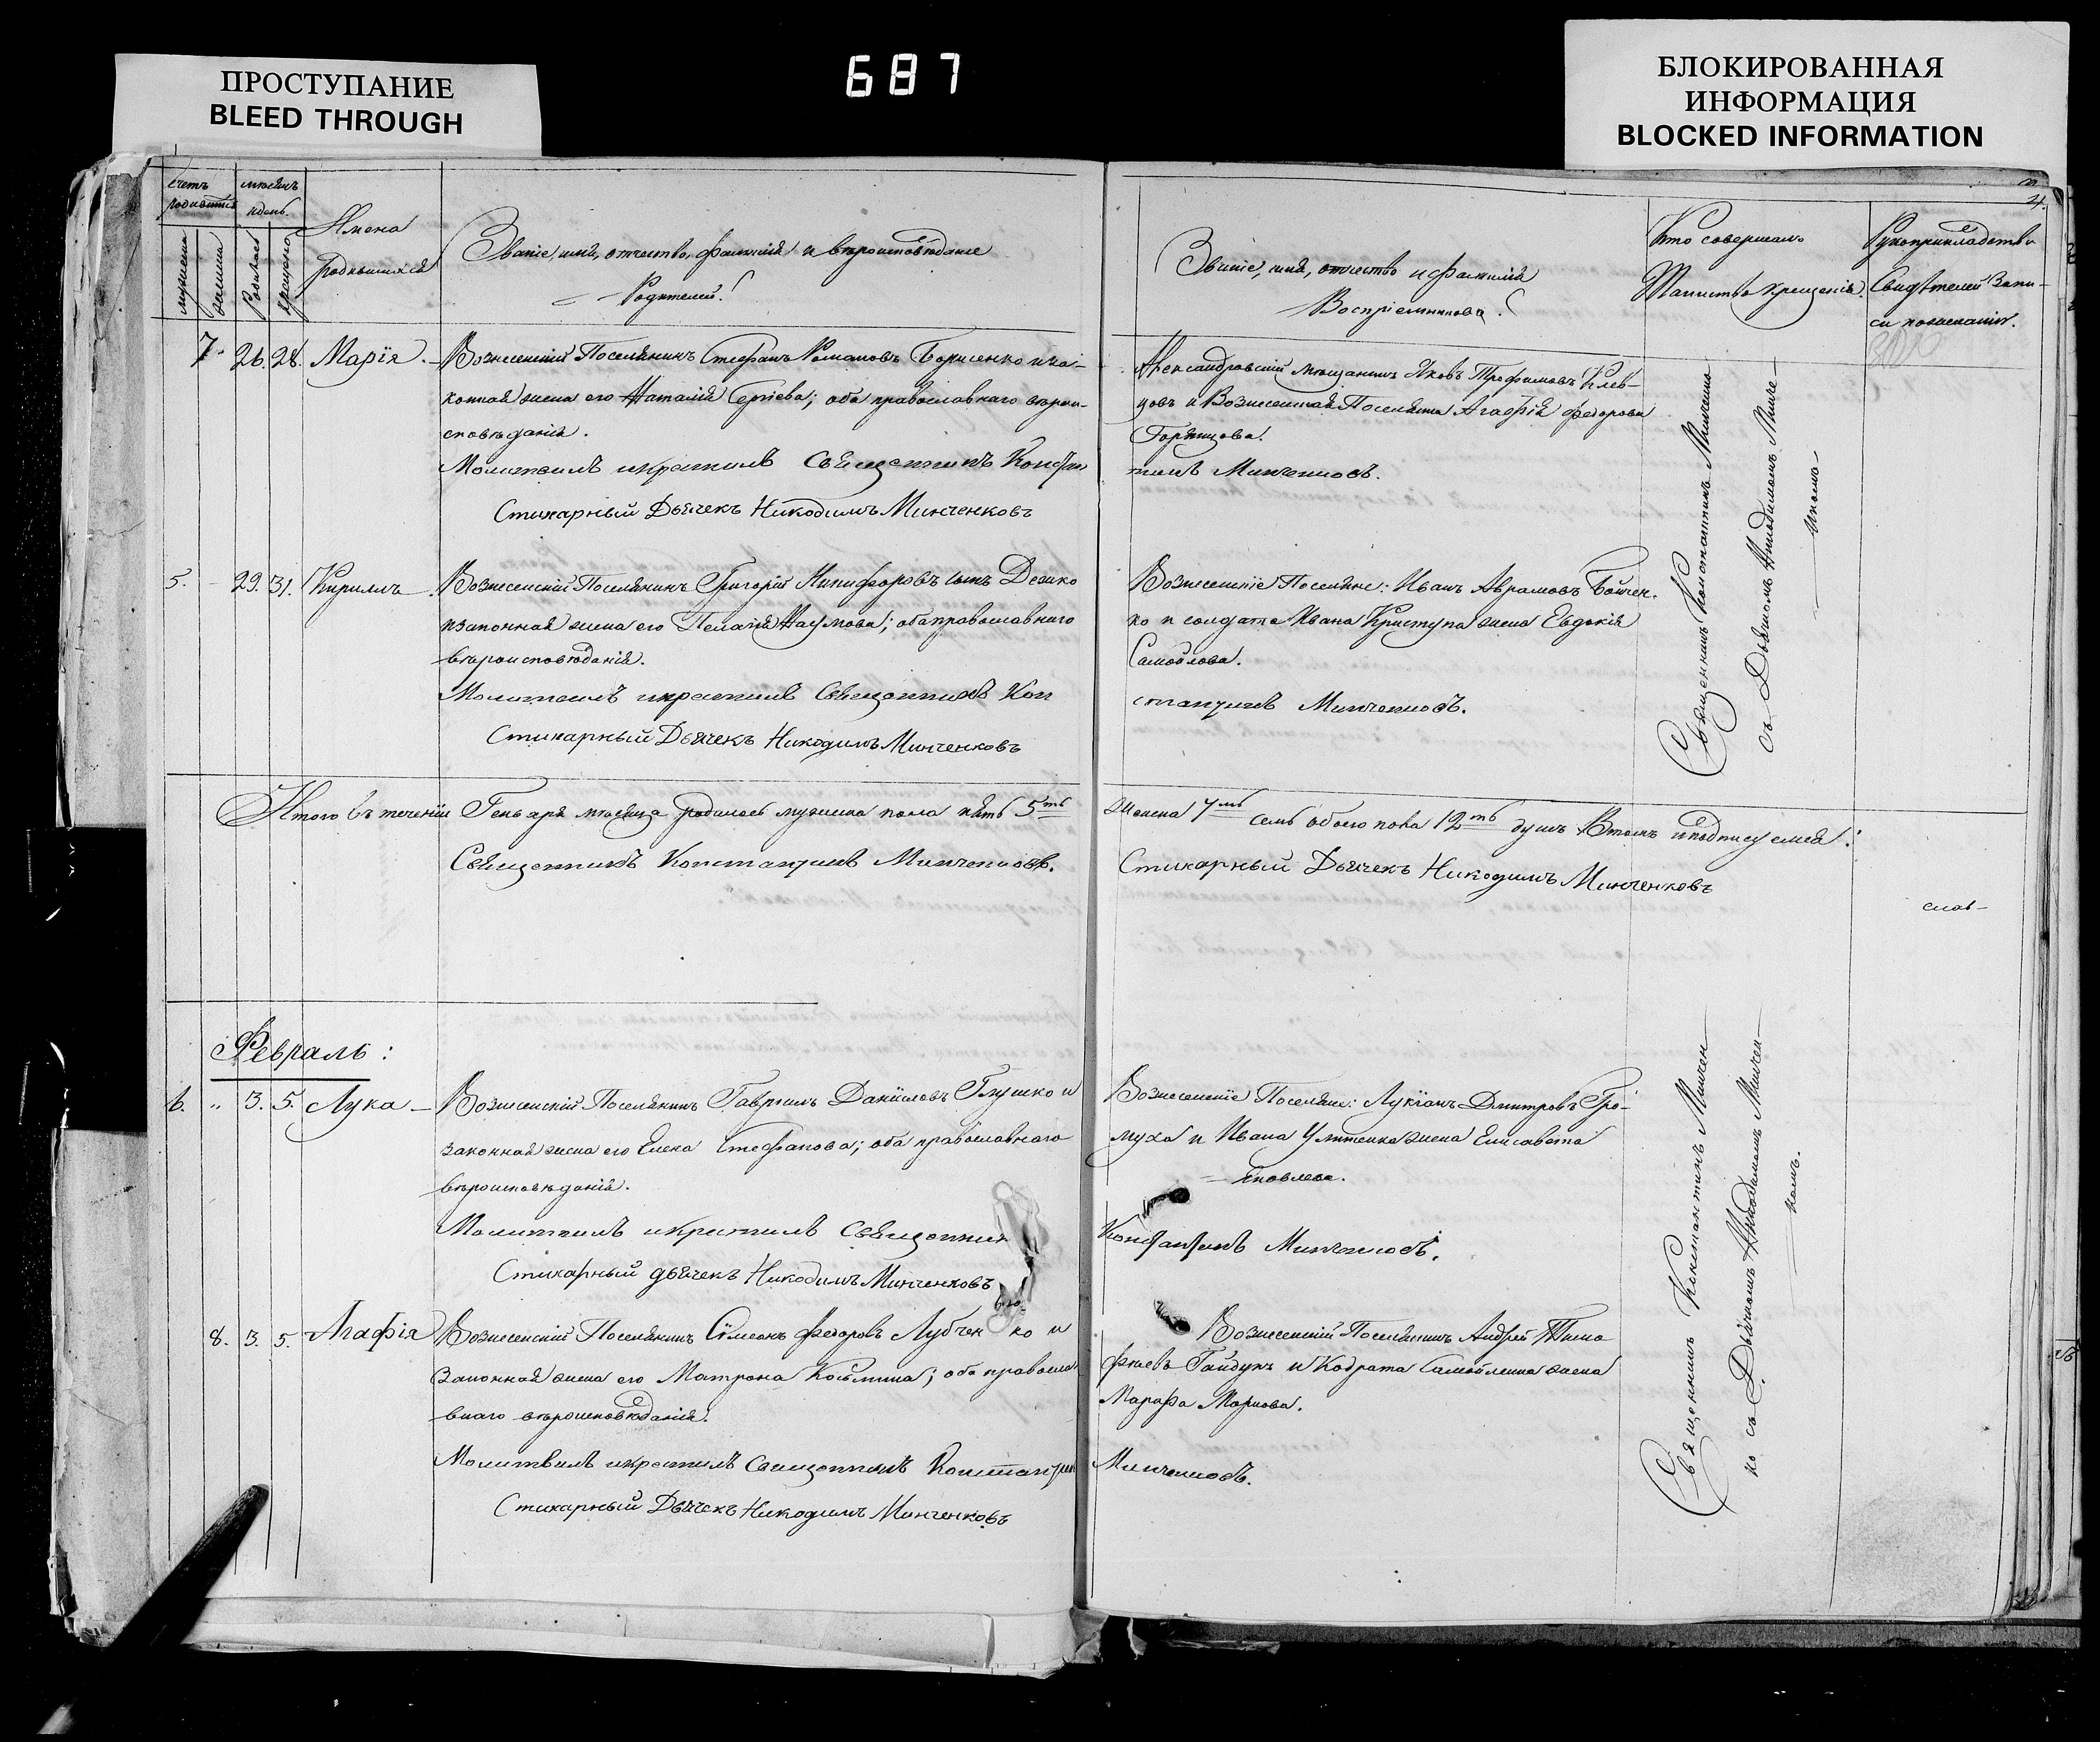 ПРОСТУПАНИЕ
BLEED THROUGH
687
БЛОКИРОВАННАЯ
ИНФОРМАЦИЯ
BLOCKED INFORMATION
4.
счетъ
родившихся
мѣсяцъ
и день
мужеска
женска
Родился
Крещенъ
Имена
родившихся
Званіе, имя, отчество, фамилія и вѣроисповѣданіе
Родителей.
Званіе, имя, отчество и фамилія
Воспріемниковъ.
Кто совершалъ
Таинство крещенія.
Рукоприкладство
Свидѣтелей запи-
си по желанію.
7. 26. 28. Марія. Вознесенскій Поселянинъ Стефанъ Романовъ Борисенко и за-
конная жена его Наталія Сергіева; оба православнаго вѣрои-
сповѣданія.
Молитвилъ и крестилъ Священникъ Констан
Стихарный Дьячекъ Никодимъ Минченковъ
Александровскій мѣщанинъ Яковъ Трофимовъ Клев-
цовъ и Вознесенская Поселянка Агафія Федорова
тинъ Минченковъ.
5. 29. 31. Кириллъ. Вознесенскій Поселянинъ Григорій Никифоровъ сынъ
и законная жена его Пелагія Наумова; оба православнаго
вѣроисповѣданія.
Молитвилъ и крестилъ Священникъ Кон
Стихарный Дьячекъ Никодимъ Минченковъ
Вознесенскіе Поселяне: Иванъ Аврамовъ Бойчен-
ко и солдата Ивана Криступа жена Евдокія
Самойлова.
стантинъ Минченковъ.
Священникъ Константинъ Минченко
съ Дьячкомъ Никодимомъ Минче-
нкомъ
Итого въ теченіи Генваря мѣсяца родилось мужеска пола пять 5ть
женска 7мь семь обоего пола 12ть душъ Въ томъ и подписуемся:
Священникъ Константинъ Минченковъ.
Стихарный Дьячекъ Никодимъ Минченковъ
Февраль:
6. " 3. 5. Лука Вознесенскій Поселянинъ Гавриилъ Даниловъ Глушко и
законная жена его Елена Стефанова; оба православнаго
вѣроисповѣданія.
Молитвилъ и крестилъ Священник
Стихарный дьячекъ Никодимъ Минченковъ
Вознесенскіе Поселяне: Лукіанъ Дмитровъ Гро-
муха и Ивана жена Елисавета
Яковлева.
Константинъ Минченковъ.
8. 3. 5. Агафія Вознесенскій Поселянинъ Сѵмеонъ Федоровъ Лубченко и
законная жена его Матрона Косьмина; оба правосла
внаго вѣроисповѣданія.
Молитвилъ и крестилъ Священникъ Константин
Стихарный Дьячекъ Никодимъ Минченковъ
Вознесенскій Поселянинъ Андрей Тимо
фѣевъ Гайдукъ и Кодрата Самойленка жена
Марфа Маркова.
Минченковъ.
Священникъ Константинъ Минчен
ко съ Дьячкомъ Никодимомъ Минчен
комъ.